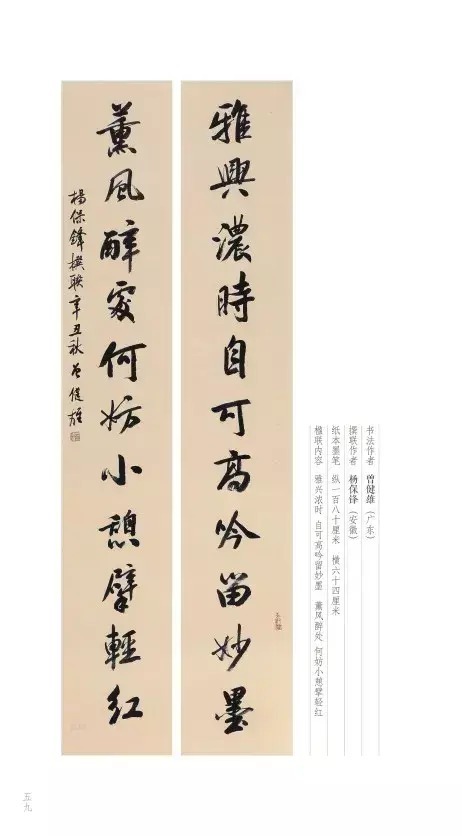 雅興濃時自可高吟留妙墨
薰風醉處何妨小憩擘輕紅
楊保鋒撰聯辛丑秋曾健雄
书法作者 曾健雄（广东）
撰联作者 杨保锋（安徽）
纸本墨笔 纵一百八十厘米 横六十四厘米
楹联内容 雅兴浓时 自可高吟留妙墨 薰风醉处 何妨小憩擘轻红
五九